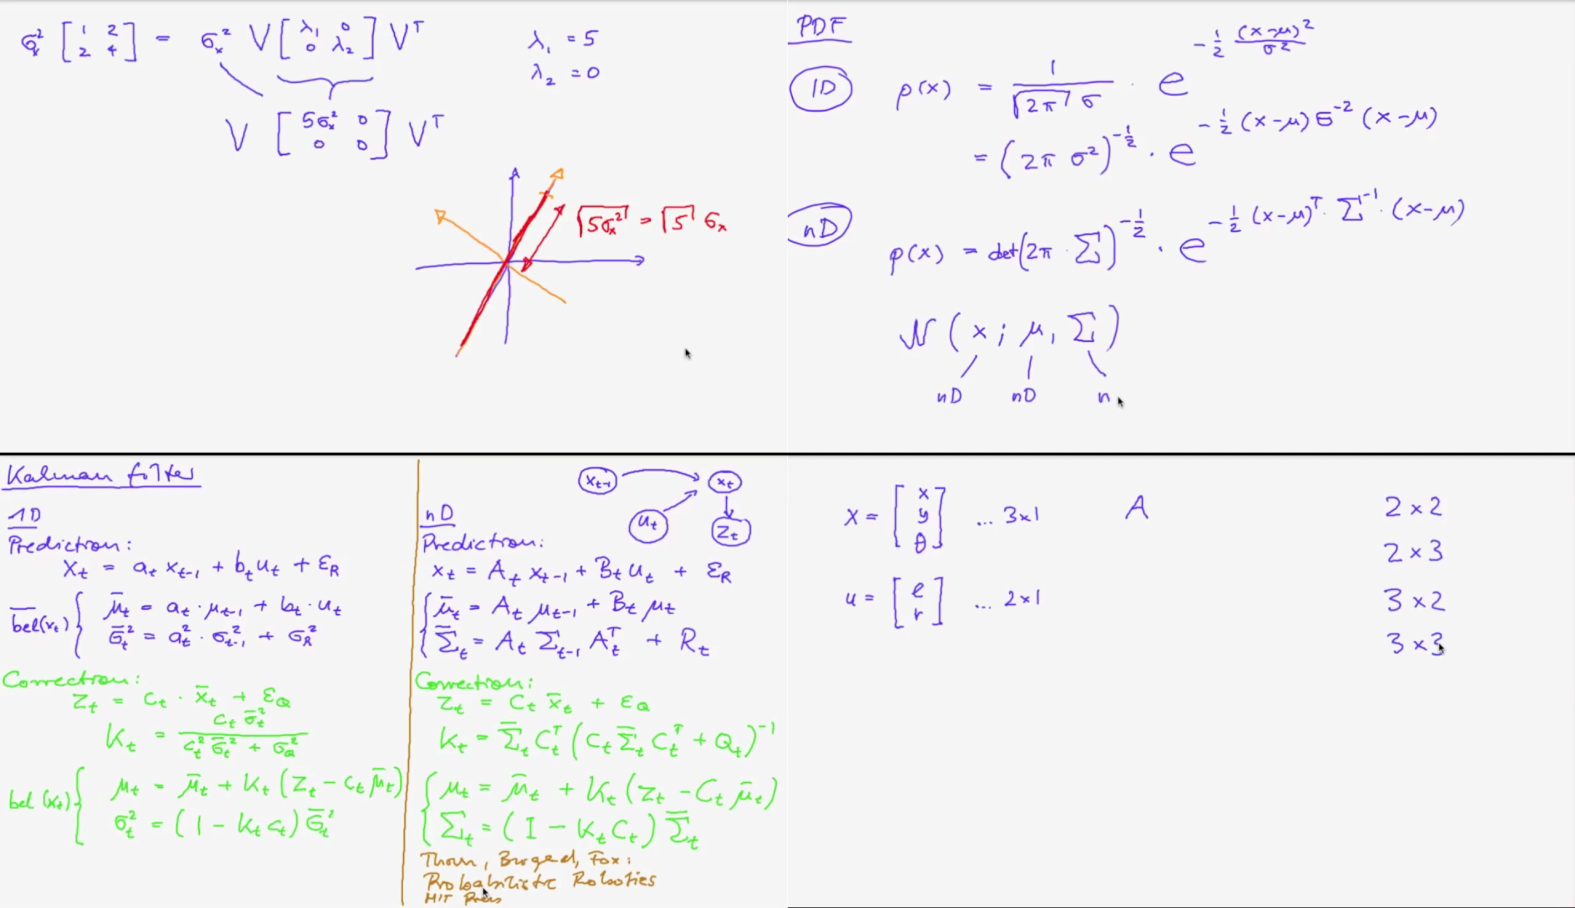 σₓ² [1 2; 2 4] = σₓ² V [λ₁ 0; 0 λ₂] Vᵀ
λ₁ = 5
λ₂ = 0
V [5σₓ² 0; 0 0] Vᵀ
√(5σₓ²) = √5 σₓ
PDF
1D
p(x) = 1/(√(2π) σ) · e^(-½ (x-μ)²/σ²)
= (2π σ²)^(-½) · e^(-½ (x-μ) σ⁻² (x-μ))
nD
p(x) = det(2π · Σ)^(-½) · e^(-½ (x-μ)ᵀ · Σ⁻¹ · (x-μ))
N (x; μ, Σ)
nD nD n
Kalman filter
1D
Prediction:
xₜ = aₜ xₜ₋₁ + bₜ uₜ + ε_R
bel̅(xₜ) { μ̄ₜ = aₜ · μₜ₋₁ + bₜ · uₜ
σ̄ₜ² = aₜ² · σₜ₋₁² + σ_R²
Correction:
zₜ = cₜ · x̄ₜ + ε_Q
Kₜ = cₜ σ̄ₜ² / (cₜ² σ̄ₜ² + σ_Q²)
bel(xₜ) { μₜ = μ̄ₜ + Kₜ (zₜ - cₜ μ̄ₜ)
σₜ² = (1 - Kₜ cₜ) σ̄ₜ²
xₜ₋₁ xₜ
uₜ zₜ
nD
Prediction:
xₜ = Aₜ xₜ₋₁ + Bₜ uₜ + ε_R
μ̄ₜ = Aₜ μₜ₋₁ + Bₜ μₜ
Σ̄ₜ = Aₜ Σₜ₋₁ Aₜᵀ + Rₜ
Correction:
zₜ = Cₜ x̄ₜ + ε_Q
Kₜ = Σ̄ₜ Cₜᵀ (Cₜ Σ̄ₜ Cₜᵀ + Qₜ)⁻¹
μₜ = μ̄ₜ + Kₜ (zₜ - Cₜ μ̄ₜ)
Σₜ = (I - Kₜ Cₜ) Σ̄ₜ
Thrun, Burgard, Fox:
Probabilistic Robotics
MIT Press
x = [x; y; θ] ... 3x1
u = [e; r] ... 2x1
A
2 x 2
2 x 3
3 x 2
3 x 3